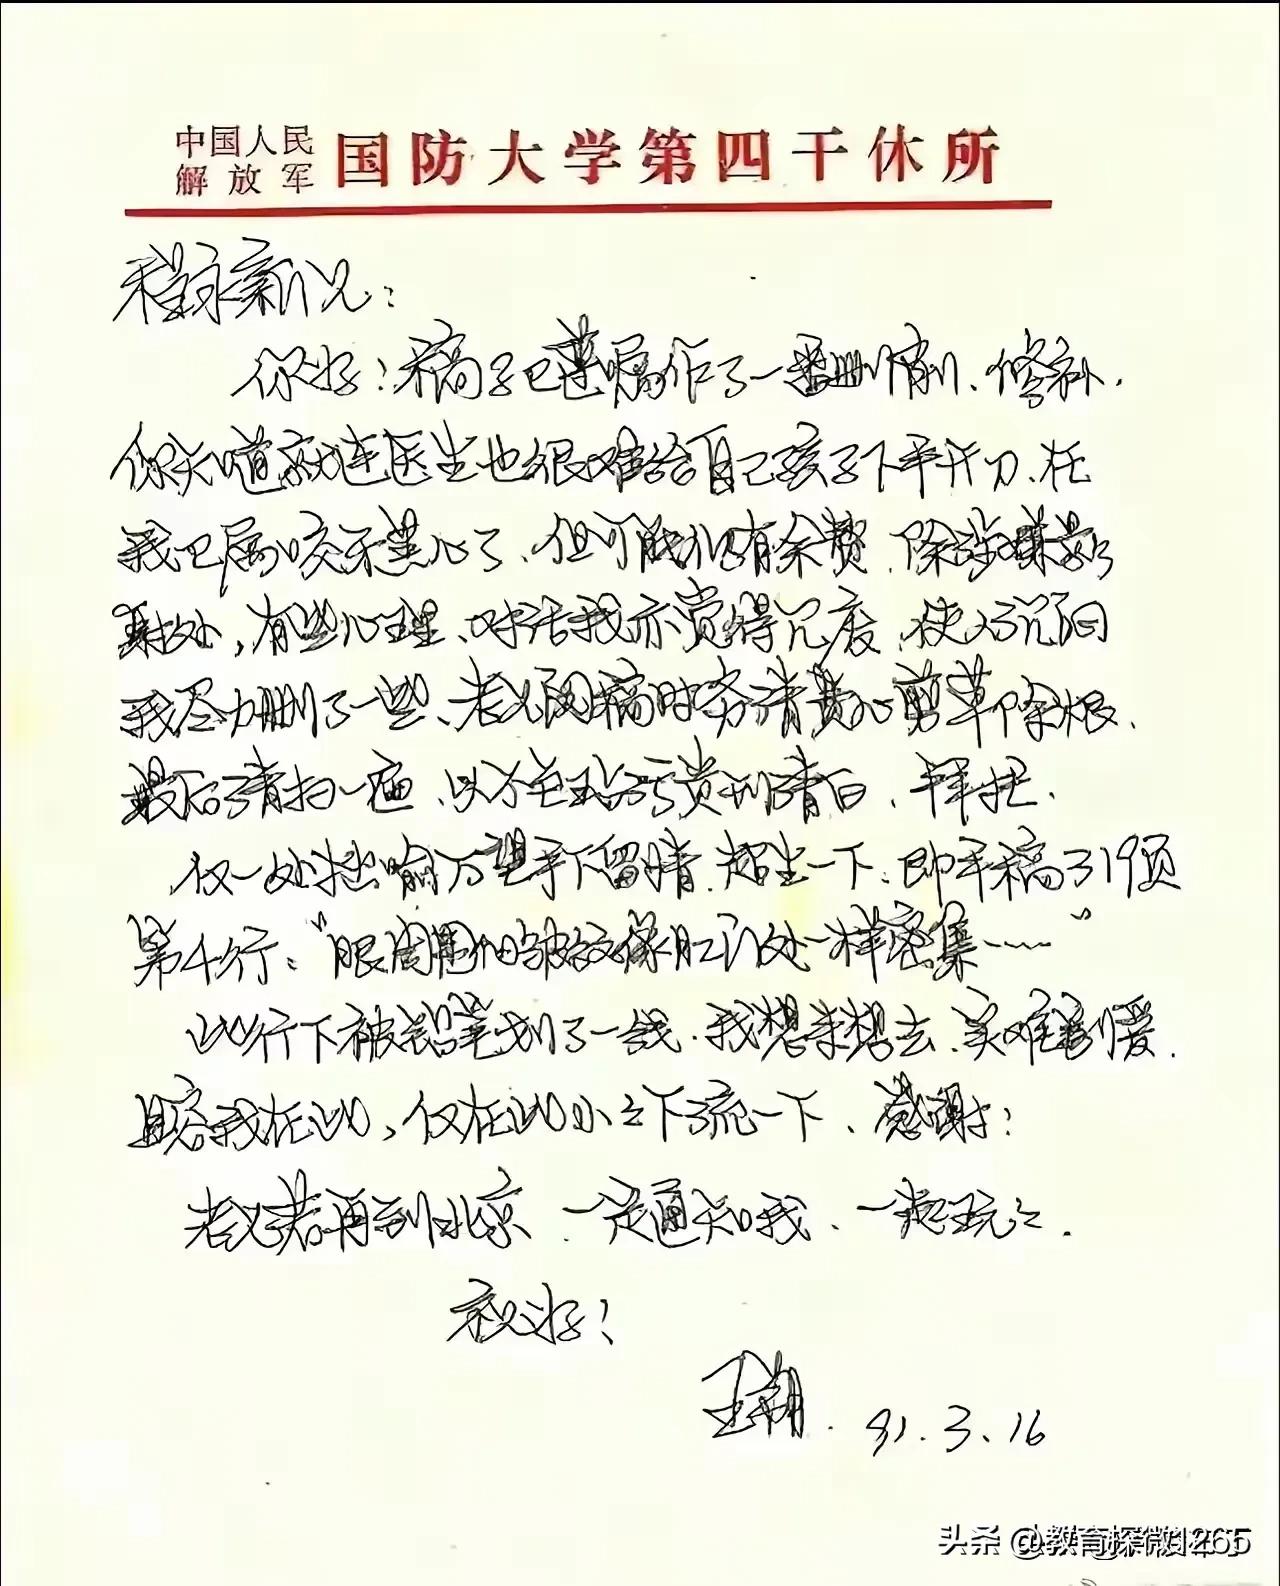 中国人民
解放军 国防大学第四干休所
程永新兄：
你好！稿子已遵嘱作了一番删削、修补，
你知道就连医生也很难给自己孩子下手开刀、在
我已属咬牙黑心了，但可能仍有余赘，除涉嫌影
射处，有些心理、对话我亦觉得冗废，使人沉闷
我尽力删了一些、老兄阅稿时务请费心剪草除根，
最后清扫一遍，以全贵刊清白，拜托、
仅一处拙喻万望手下留情，超生一下、即手稿了19页
第4行：“眼周围细皱纹像肛门处一样密集……”
此行下被铅笔划了一线，我想来想去、实难割爱，
且容我在此，仅在此小小下流一下、感谢！
老兄若再到北京、一定通知我、一起玩玩。
祝好！
王朔．91.3.16
头条 @教育探微1265